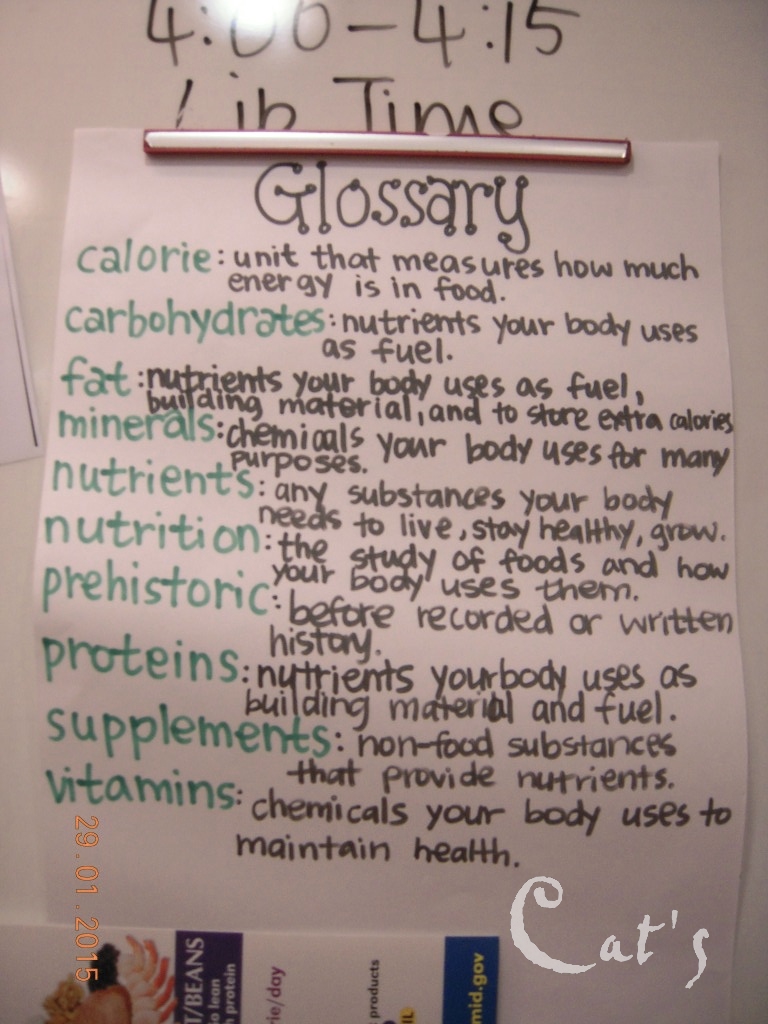 4:00-4:15
Lib Time
Glossary
calorie: unit that measures how much
energy is in food.
carbohydrates: nutrients your body uses
as fuel.
fat: nutrients your body uses as fuel,
building material, and to store extra calories
minerals: chemicals your body uses for many
purposes.
nutrients: any substances your body
needs to live, stay healthy, grow.
nutrition: the study of foods and how
your body uses them.
prehistoric: before recorded or written
history.
proteins: nutrients your body uses as
building material and fuel.
supplements: non-food substances
that provide nutrients.
vitamins: chemicals your body uses to
maintain health.
29.01.2015
Cat's
T/BEANS
o lean
protein
rie/day
products
IL
mid.gov